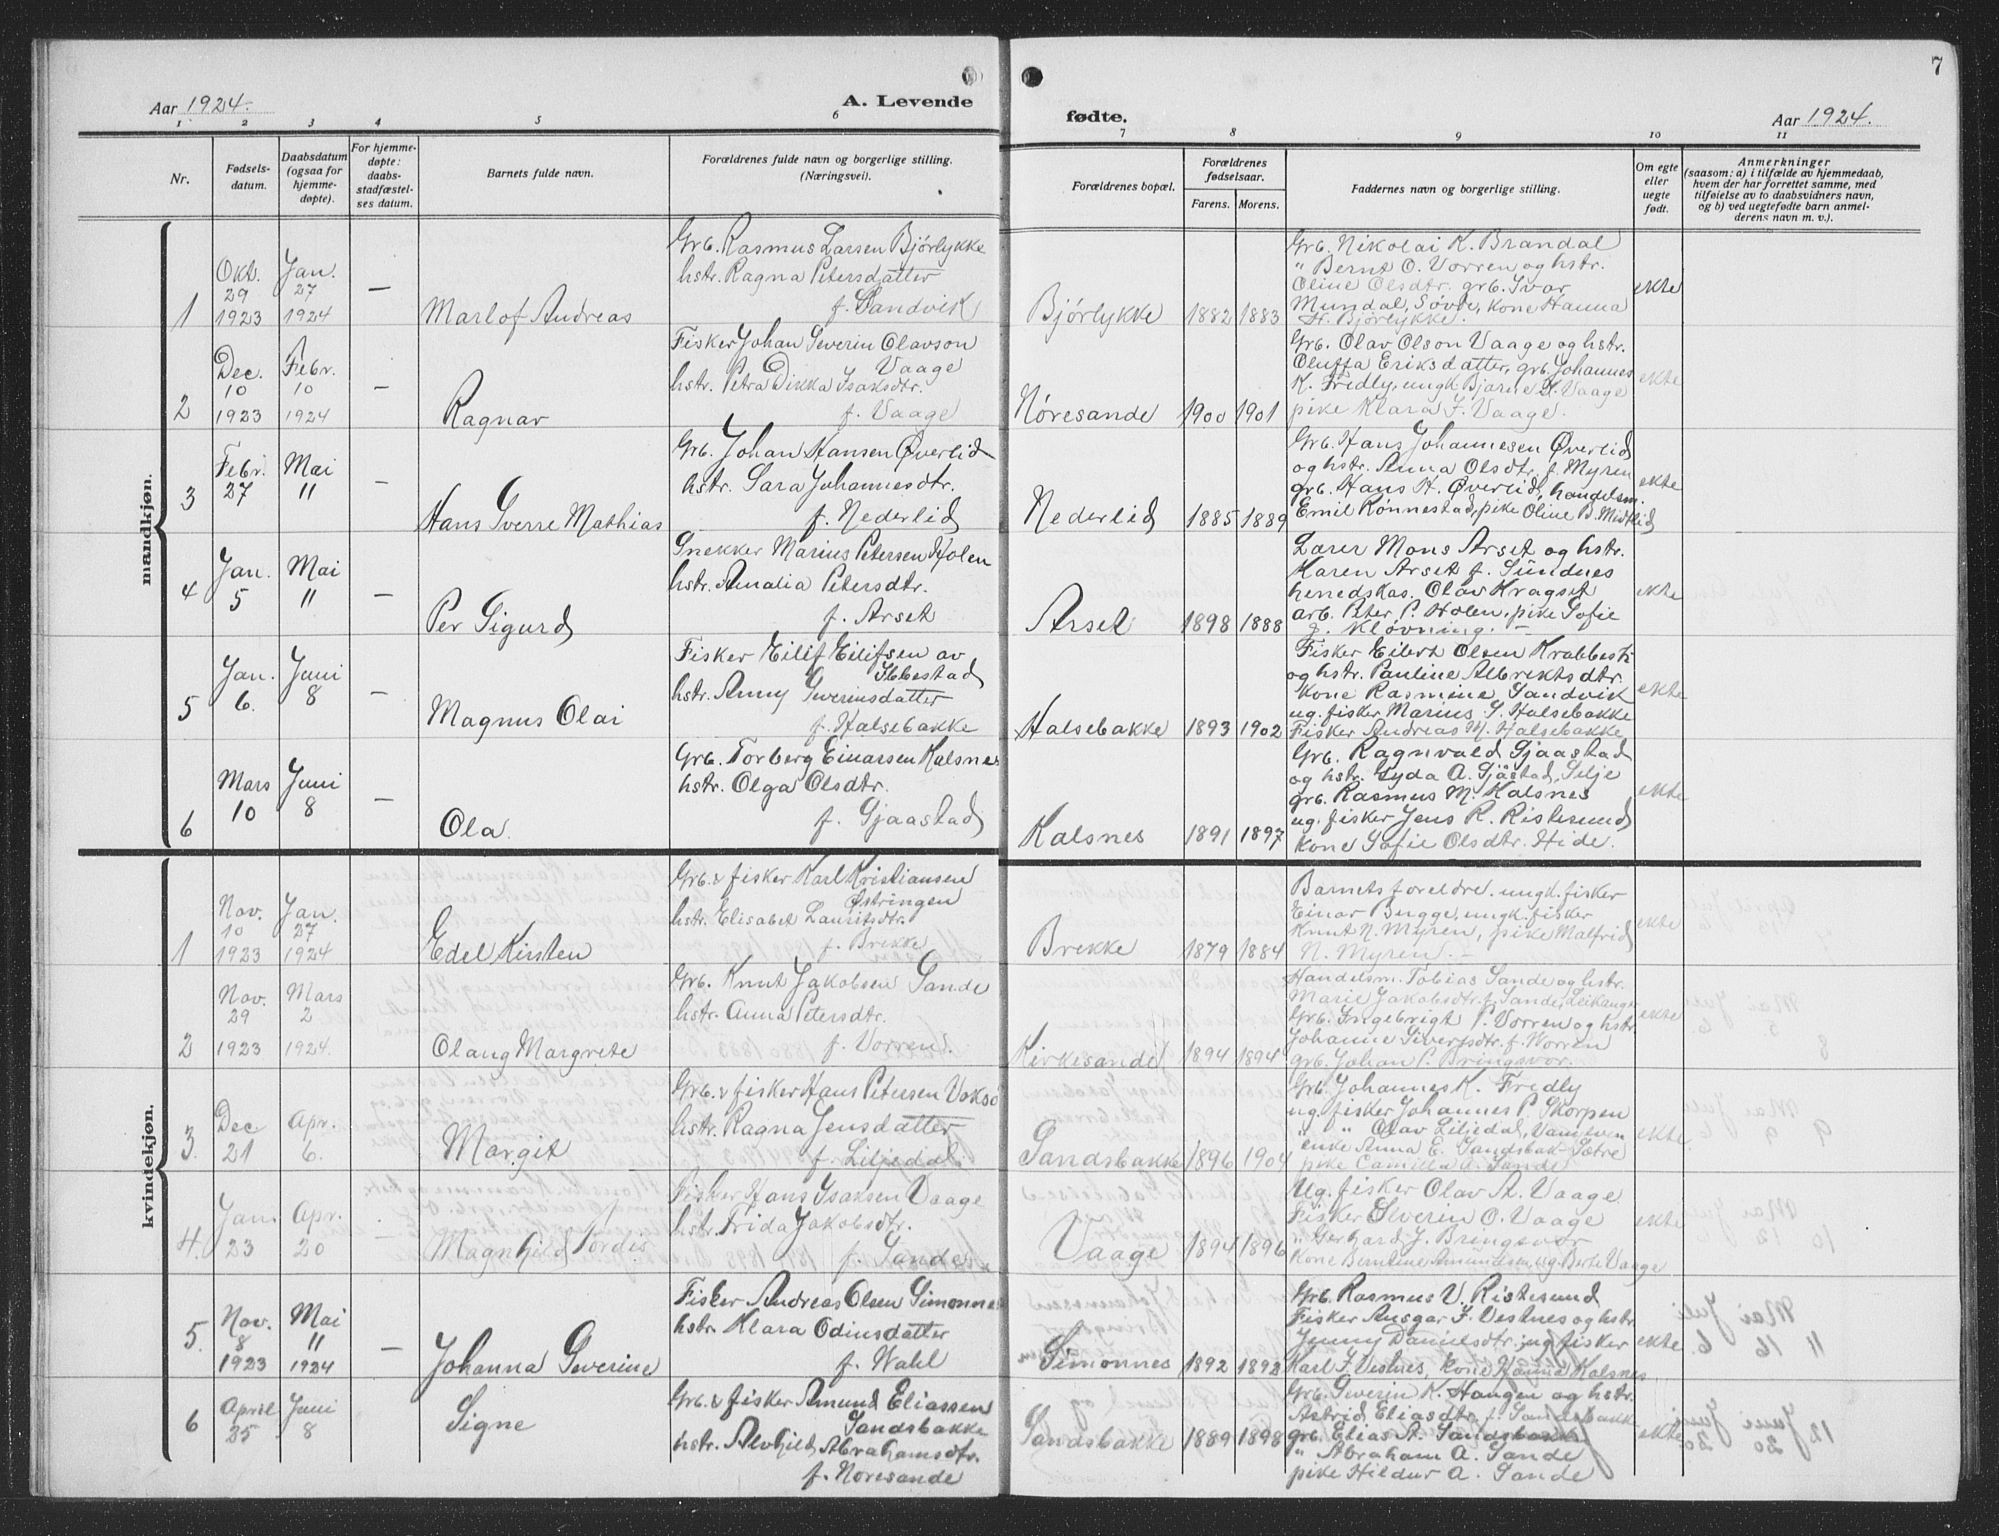 7
Aar 1924.
A. Levende
fødte.
Aar 1924.
1 2 3 4 5 6 7 8 9 10 11
Nr.
Fødsels-
datum.
Daabsdatum
(ogsaa for
hjemme-
døpte).
For hjemme-
døpte:
daabs-
stadfæstel-
ses datum.
Barnets fulde navn.
Forældrenes fulde navn og borgerlige stilling.
(Næringsvei).
Forældrenes bopæl.
Forældrenes
fødselsaar.
Farens. Morens.
Faddernes navn og borgerlige stilling.
Om egte
eller
uegte
født.
Anmerkninger
(saasom: a) i tilfælde av hjemmedaab,
hvem der har forrettet samme, med
tilføielse av to daabsvidners navn,
og b) ved uegtefødte barn anmel-
derens navn m. v.).
mandkjøn.
1
Okt.
29
1923
Jan.
27
1924
—
Marlof Andreas
Grb. Rasmus Larsen Bjørlykke
hstr. Ragna Petersdatter
f. Sandvik
Bjørlykke
1882 1883
Grb. Nikolai K. Brandal
" Bernt O. Vorren og hstr.
Oline Olsdtr. grb. Ivar
Mundal, Søvde, kone Hanna
H. Bjørlykke.
ekte
2
Dec.
10
1923
Febr.
10
1924
—
Ragnar
Fisker Johan Severin Olavson
Vaage
hstr. Petra Dikka Isaksdtr.
f. Vaage
Nøresande
1900 1901
Grb. Olav Olson Vaage og hstr.
Oluffa Eriksdatter, grb. Johannes
K. Fredly, ungk Bjarne K. Vaage
pike Klara J. Vaage.
ekte
3
Febr.
27
Mai
11
—
Hans Sverre Mathias
Grb. Johan Hansen Øverlid
hstr. Sara Johannesdtr.
f. Nederlid
Nederlid
1885 1889
Grb. Hans Johannesen Øverlid
og hstr. Anna Olsdtr. f. Myren
grb. Hans H. Øverlid, handelsm.
Emil Rønnestad, pike Oline B. Midtlid
ekte
4
Jan.
5
Mai
11
—
Per Sigurd
Snekker Marius Petersen Holen
hstr. Amalia Petersdtr.
f. Arset
Arset
1898 1888
Lærer Mons Arset og hstr.
Karen Arset f. Sundnes
herredskas. Olav Kragset
arb. Peter P. Holen, pike Sofie
J. Kløvning. —
ekte
5
Jan.
6.
Juni
8
—
Magnus Olai
Fisker Eilif Eilifsen av
Ibbestad
hstr. Anny Severinsdatter
f. Halsebakke
Halsebakke
1893 1902
Fisker Eilert Olsen Krabbest.
og hstr. Pauline Albriktsdtr.
Kone Rasmine Sandvik
ug. fisker Marius S. Halsebakke
Fisker Andreas M. Halsebakke
ekte
6
Mars
10
Juni
8
—
Ola
Grb. Torberg Einarsen Kalsnes
hstr. Olga Olsdtr.
f. Gjaastad
Kalsnes
1891 1897
Grb. Ragnvald Gjaastad
og hstr. Lyda A. Gjåstad, Silje
grb. Rasmus M. Kalsnes
ug. fisker Jens R. Ristesund
kone Sofie Olsdtr. Hide.
ekte
kvindekjøn.
1
Nov.
10
1923
Jan.
27
1924
Edel Kirsten
Grb. & fisker Karl Kristiansen
Østringen
hstr. Elisabet Lauritsdtr.
f. Brekke
Brekke
1879 1884
Barnets foreldre. ungk. fisker
Einar Bugge, ungk. fisker
Knut N. Myren, pike Malfrid
N. Myren. —
ekte
2
Nov.
29
1923
Mars
2
1924.
Olaug Margrete
Grb. Knut Jakobsen Sande
hstr. Anna Petersdtr.
f. Vorren.
Kirkesande
1894 1894
Handelsm. Tobias Sande og hstr.
Marie Jakobsdtr. f. Sande, Leikanger
Grb. Ingebrigt P. Vorren og hstr.
Johanne Sivertsdtr. f. Vorren
grb. Johan P. Bringsvor.
ekte
3.
Dec
21
Apr.
6.
—
Margit
Grb. & fisker Hans Petersen Voksø
hstr. Ragna Jensdatter
f. Liljedal
Sandsbakke
1896 1904
Grb. Johannes K. Fredly
ug. fisker Johannes P. Skorpen
" " Olav Liljedal, Vanylven
enke Anna E. Sandsbak-Sætre
pike Camilla A. Sande
ekte
4.
Jan.
23
Apr.
20
—
Magnhild Tordis
Fisker Hans Isaksen Vaage
hstr. Frida Jakobsdtr.
f. Sande
Vaage
1894 1896
Ug. fisker Olav A. Vaage
Fisker Severin O. Vaage
" Gerhard J. Bringsvor
Kone Berntine Amundsen, ug. Berte Vaage
ekte
5.
Nov.
8
1923
Mai
11
1924
—
Johanna Severine
Fisker Andreas Olsen Simonnes
hstr. Klara Odinsdatter
f. Wahl
Simonnes
1892 1892
Grb. Rasmus V. Ristesund
Fisker Ansgar F. Vestnes og hstr.
Jenny Danielsdtr. ug. fisker
Karl F. Vestnes, kone Hanna Kalsnes
ekte
6
April
25
Juni
8
Signe
Grb. & fisker Amund Eliassen
Sandsbakke
hstr. Alvhild Abrahamsdtr.
f. Noresande
Sandsbakke
1889 1898
Grb. Severin K. Haugen og hstr.
Astrid Eliasdtr. f. Sandsbakk
grb. Elias A. Sandsbakk
" Abraham A. Sande
pike Hildur A. Sande
ekte